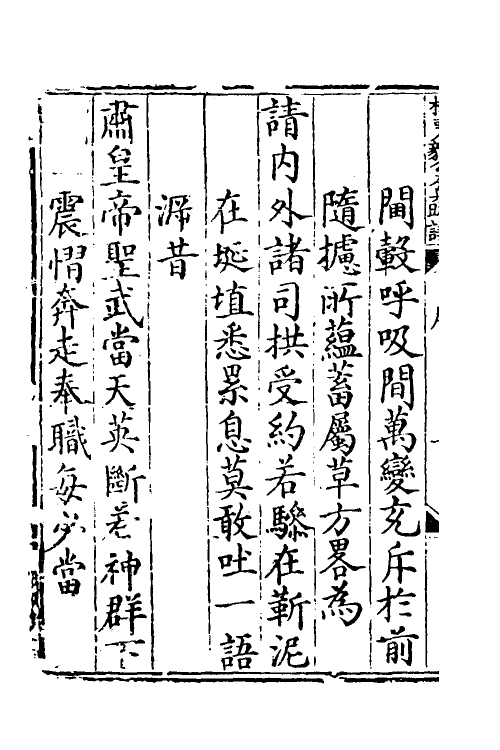 閫轂呼吸間萬變充斥於前
隨攄所蘊蓄屬草方畧為
請內外諸司拱受約若驂在靳泥
在埏埴悉累息莫敢吐一語
泝昔
肅皇帝聖武當天英斷若神群下
震慴奔走奉職每必當